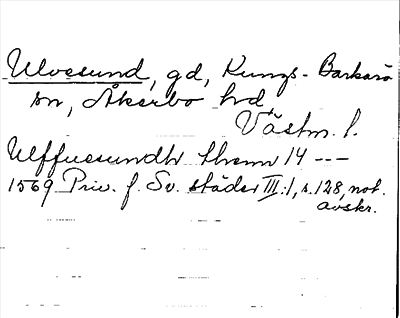 Ulvesund, gd, Kungs-Barkarö
sn, Åkerbo hd
Västm. l.
Ulffuesundh thenn 14 ---
1569 Priv. f. Sv. städer III:1, s. 128, not.
avskr.